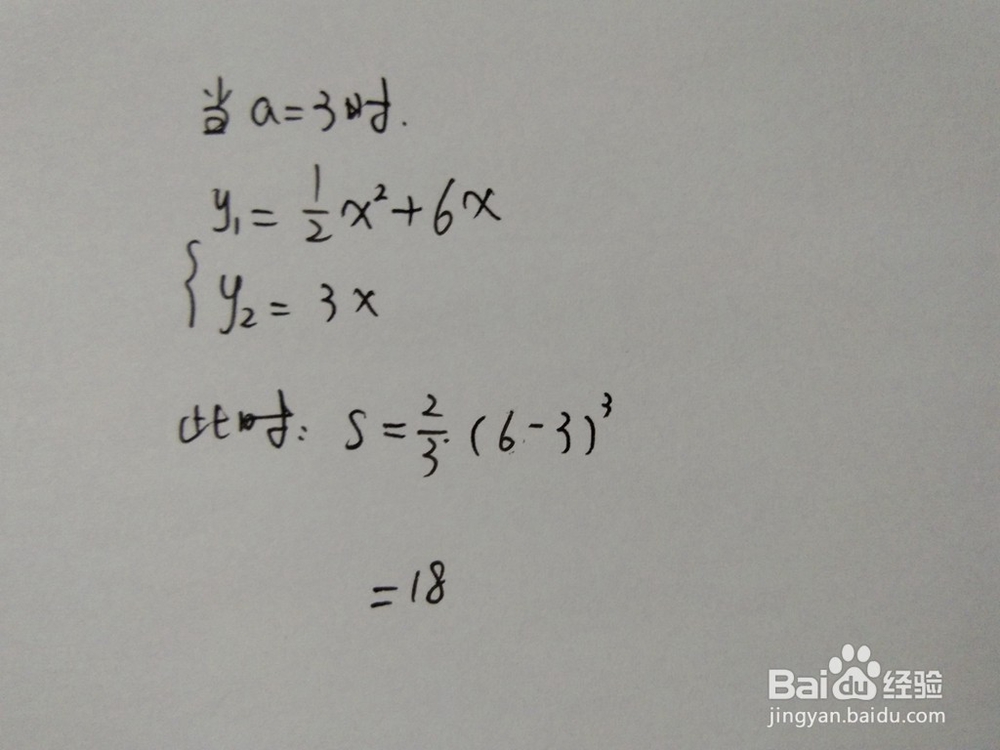 当 a=3时.
y₁= 1/2 x²+6x
{ y₂= 3x
此时: S= 2/3 (6-3)³
=18
Baidu经验
jingyan.baidu.com